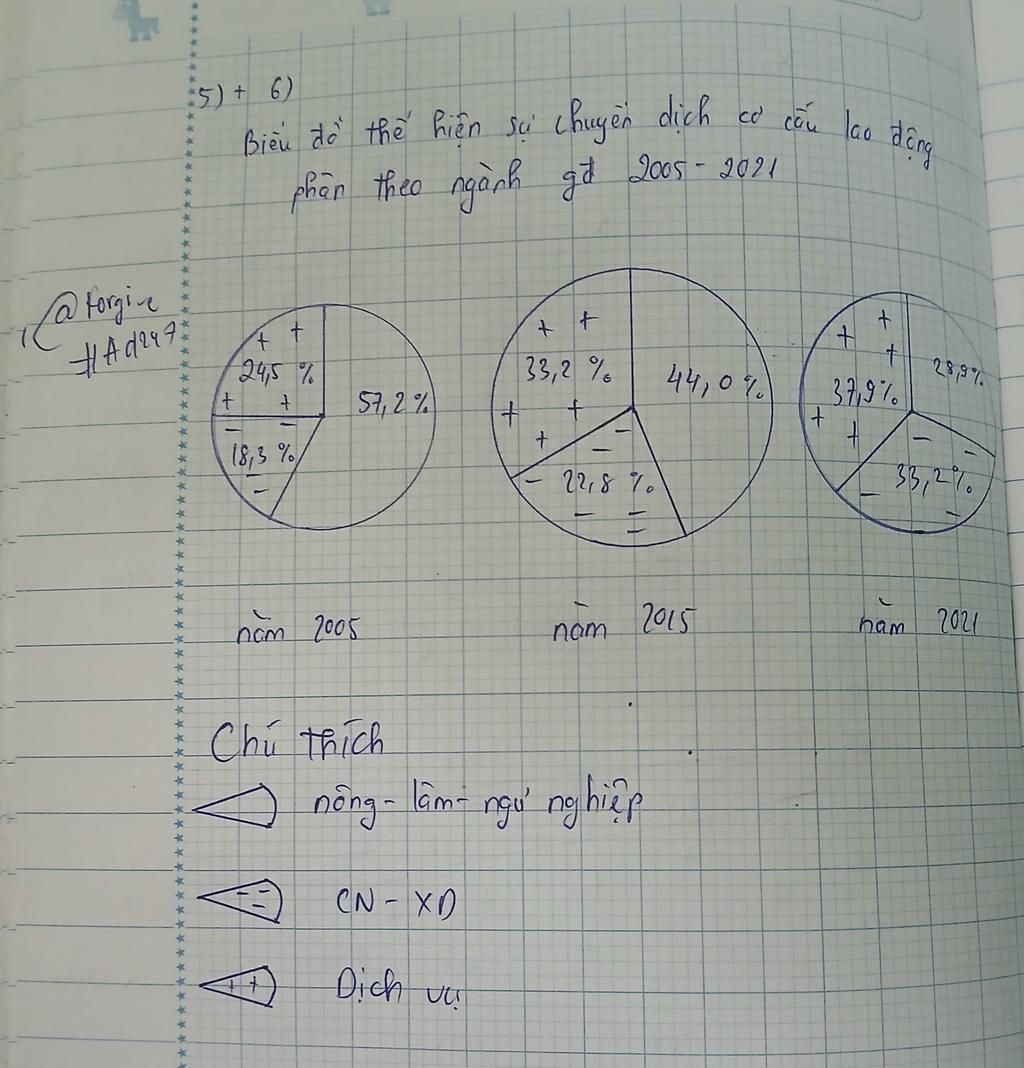 5) + 6)
Biểu đồ thể hiện sự chuyển dịch cơ cấu lao động
phân theo ngành gđ 2005 - 2021
@Forgive
#Ad247
24,5 %
57,2 %
18,3 %
33,2 %
44,0 %
22,8 %
37,9 %
28,9 %
33,2 %
năm 2005
năm 2015
năm 2021
Chú thích
nông - lâm - ngư nghiệp
CN - XD
Dịch vụ